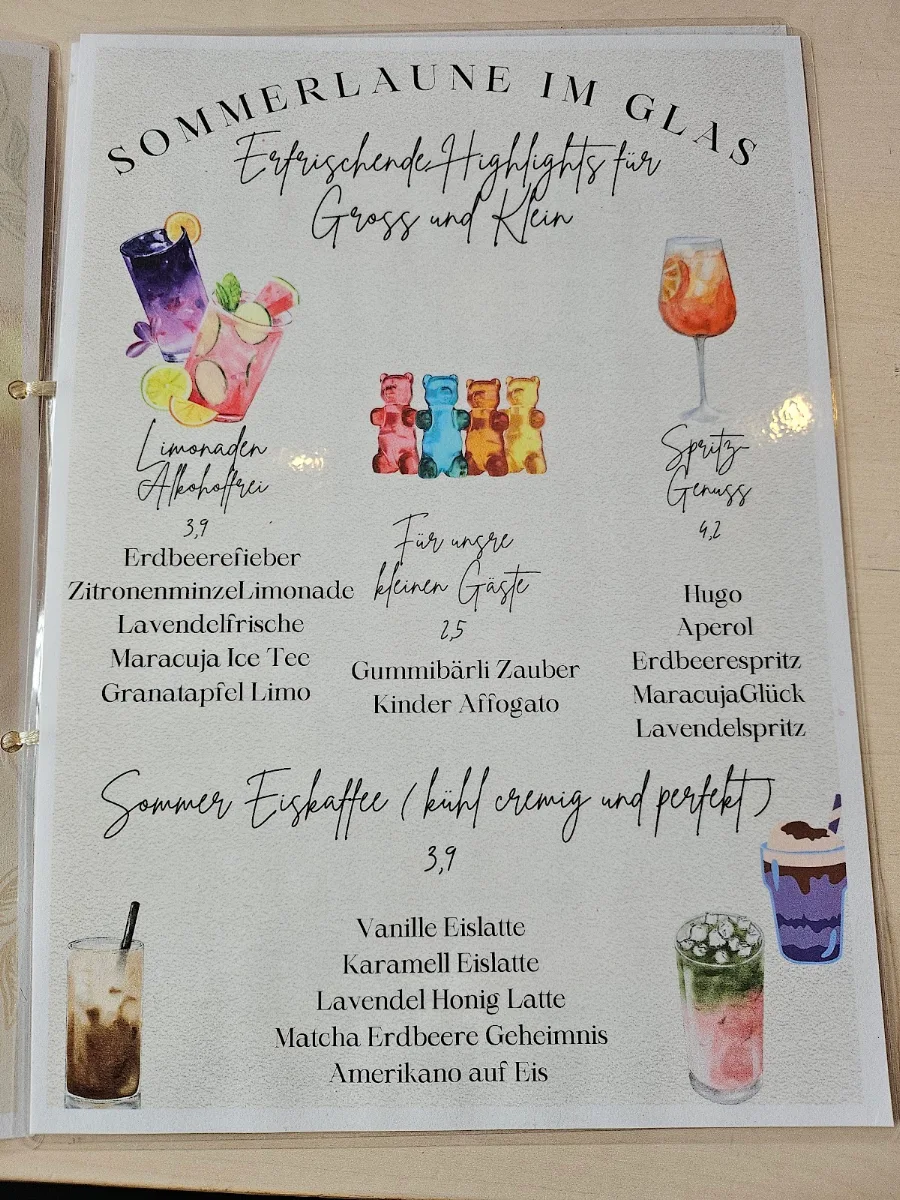 SOMMERLAUNE IM GLAS
Erfrischende Highlights für
Gross und Klein
Limonaden
Alkoholfrei
3,9
Erdbeerefieber
ZitronenminzeLimonade
Lavendelfrische
Maracuja Ice Tee
Granatapfel Limo
Für unsre
kleinen Gäste
2,5
Gummibärli Zauber
Kinder Affogato
Spritz-
Genuss
4,2
Hugo
Aperol
Erdbeerespritz
MaracujaGlück
Lavendelspritz
Sommer Eiskaffee (kühl cremig und perfekt)
3,9
Vanille Eislatte
Karamell Eislatte
Lavendel Honig Latte
Matcha Erdbeere Geheimnis
Amerikano auf Eis